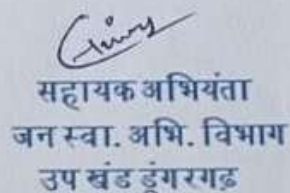 सहायक अभियंता
जन स्वा. अभि. विभाग
उप खंड डूंगरगढ़